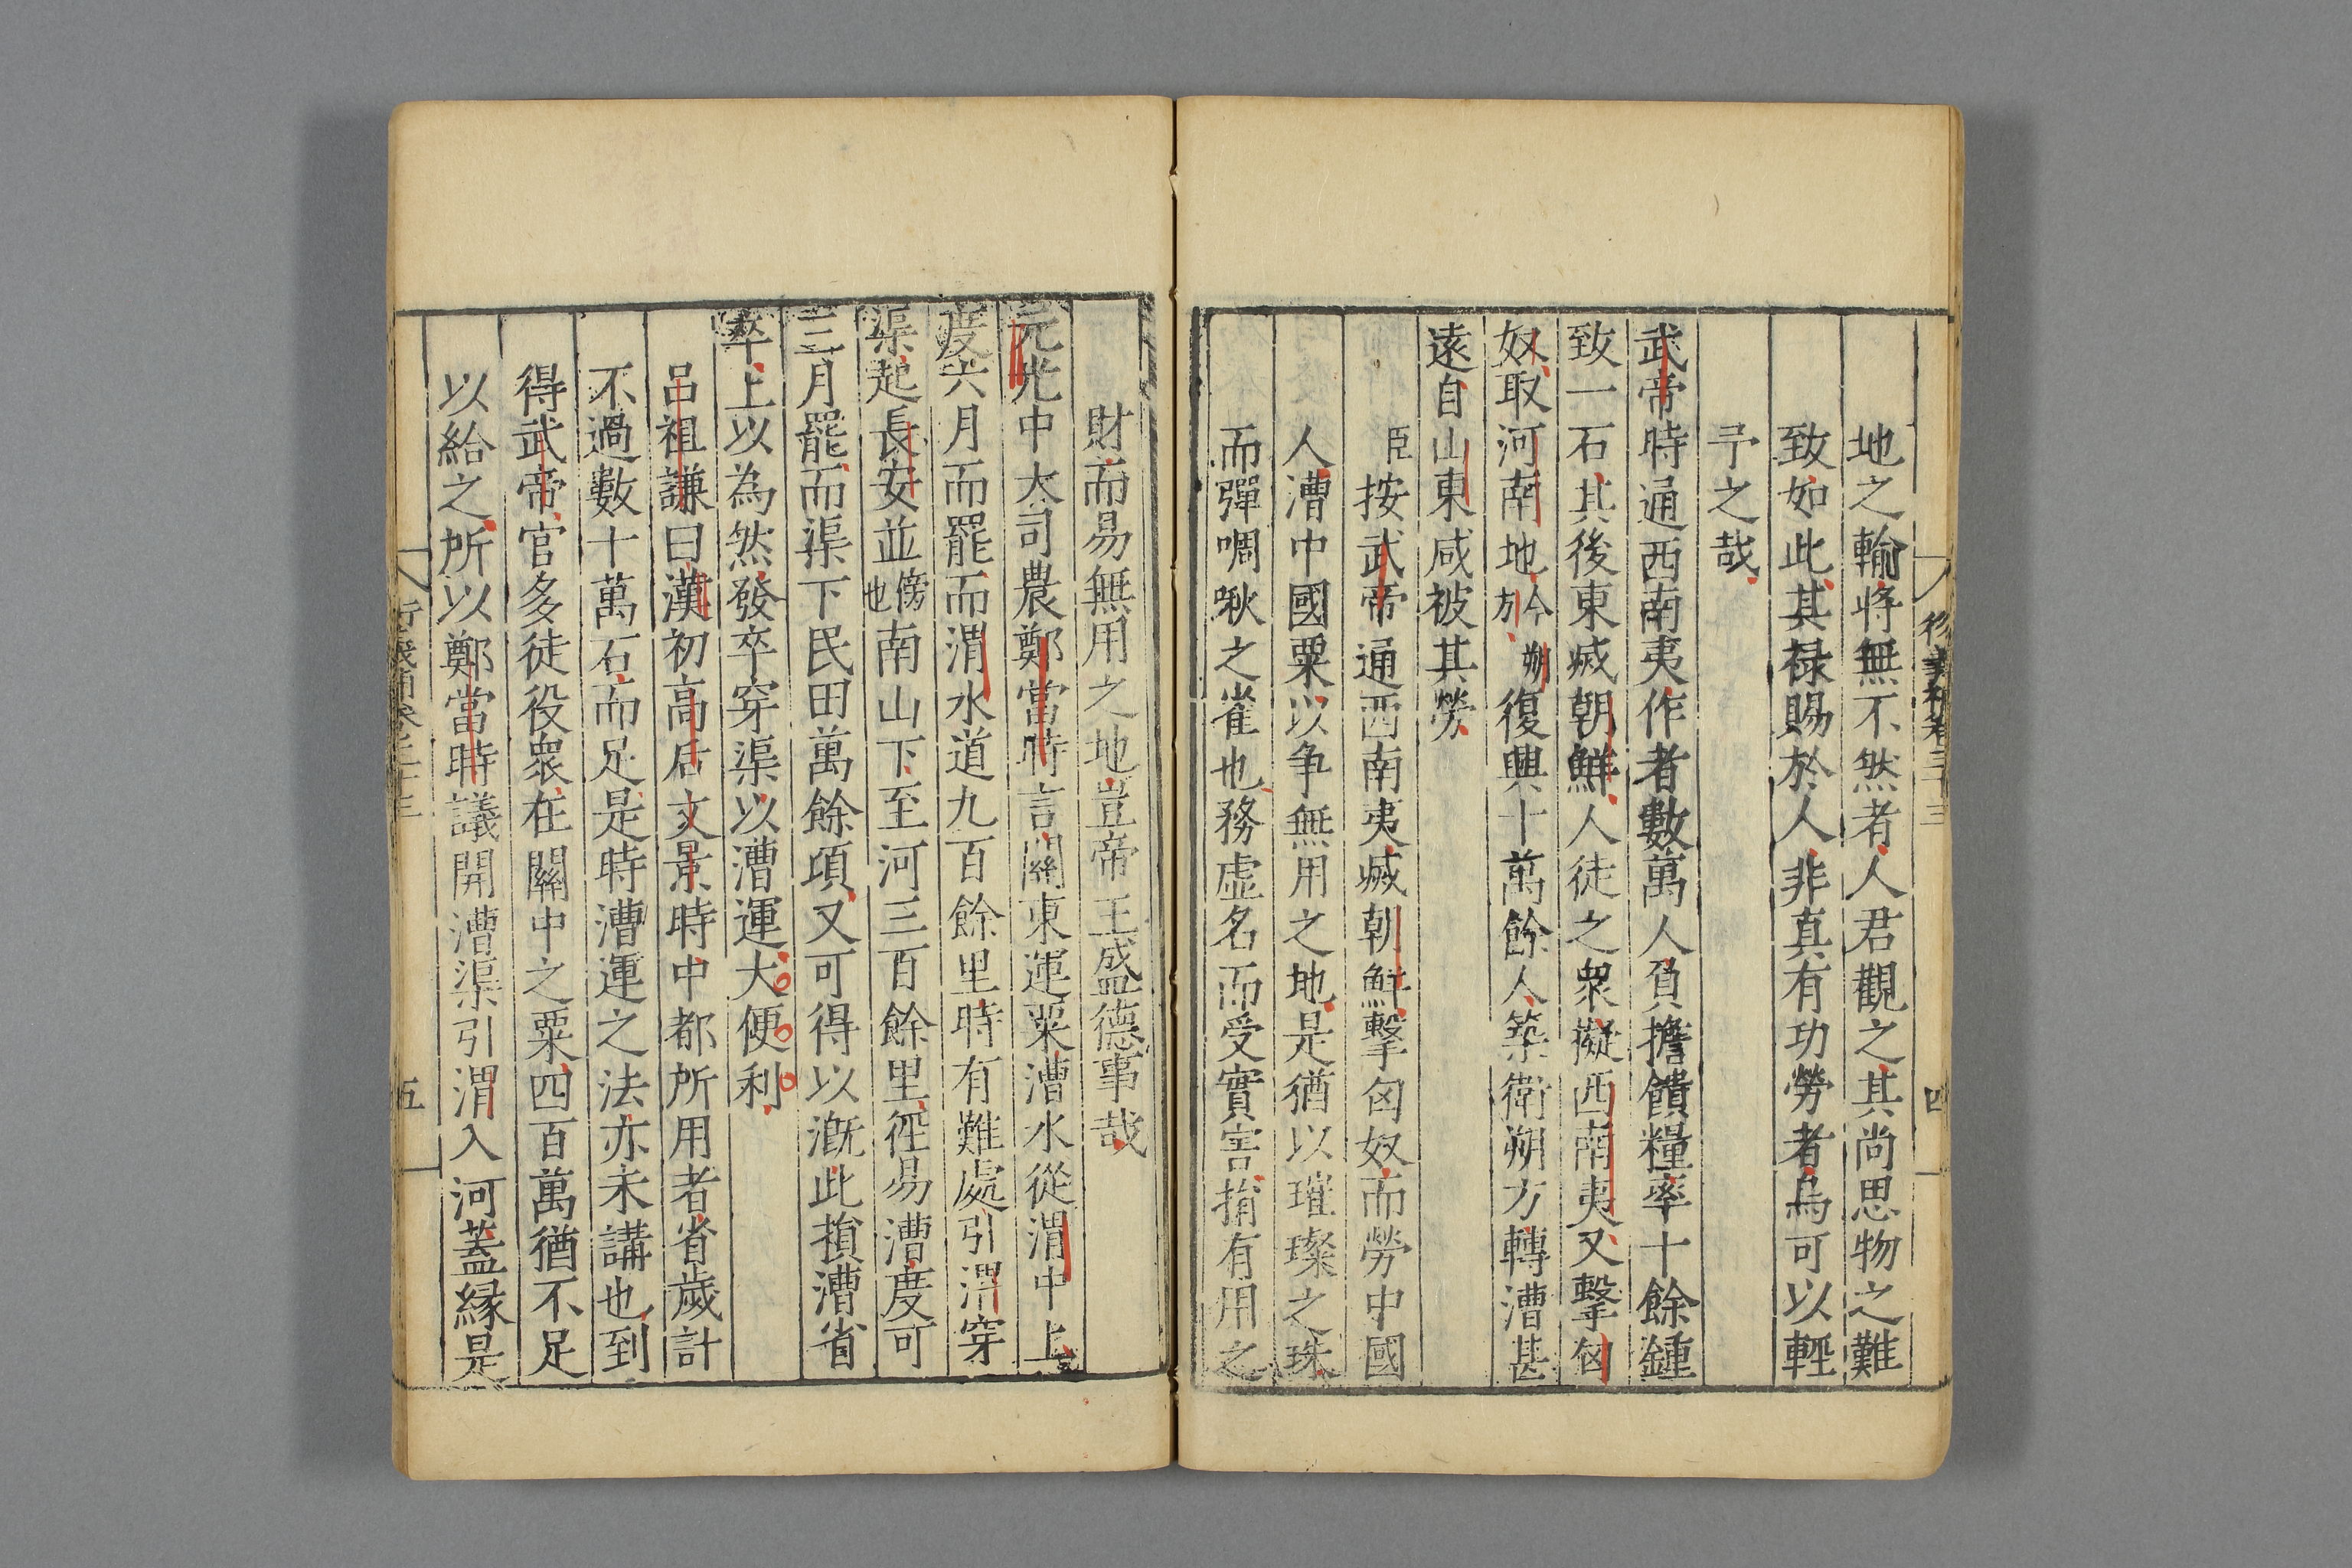 地之輸將無不然者人君觀之其尚思物之難
致如此其祿賜於人非真有功勞者烏可以輕
予之哉
武帝時通西南夷作者數萬人負擔饋糧率十餘鍾
致一石其後東㓕朝鮮人徒之衆擬西南夷又擊匈
奴取河南地今朔方復興十萬餘人築衛朔方轉漕甚
遠自山東咸被其勞
臣按武帝通西南夷㓕朝鮮擊匈奴而勞中國
人漕中國粟以争無用之地是猶以璀璨之珠
而彈啁啾之雀也務虛名而受實害捐有用之
財而易無用之地豈帝王盛德事哉
元光中大司農鄭當時言關東運粟漕水從渭中上
度六月而罷而渭水道九百餘里時有難處引渭穿
渠起長安並傍也南山下至河三百餘里徑易漕度可
三月罷而渠下民田萬餘頃又可得以漑此損漕省
卒上以為然發卒穿渠以漕運大便利
呂祖謙曰漢初高后文景時中都所用者省歲計
不過數十萬石而足是時漕運之法亦未講也到
得武帝官多徒役衆在關中之粟四百萬猶不足
以給之所以鄭當時議開漕渠引渭入河蓋緣是
五